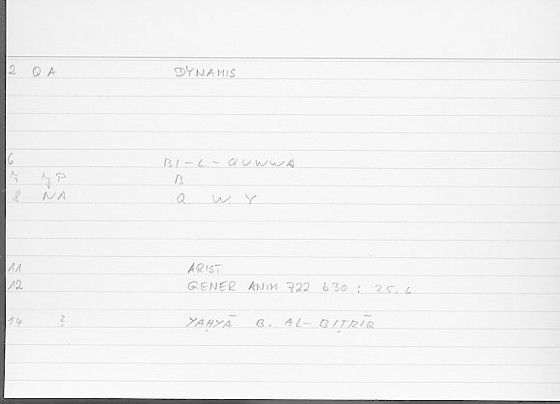 2 QA DYNAMIS
6 BI-L-QUWWA
7 P B
8 NA Q W Y
11 ARIST
12 GENER ANIM 722 b30 : 25.6
14 ? YAḤYĀ B. AL-BIṬRĪQ